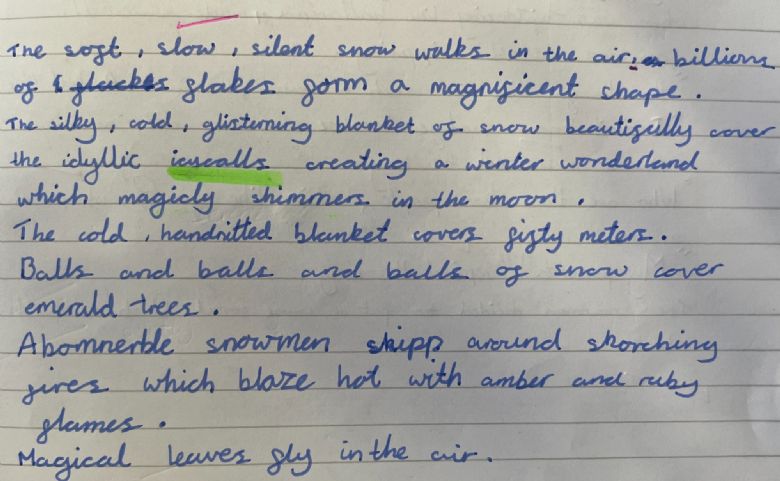 The soft, slow, silent snow walks in the air; billions
of flakes form a magnificent shape.
The silky, cold, glisterning blanket of snow beautifully cover
the idyllic icucalls creating a winter wonderland
which magicly shimmers in the moon.
The cold, handnitted blanket covers fifty meters.
Balls and balls and balls of snow cover
emerald trees.
Abomnerble snowmen skipp around skorching
fires which blaze hot with amber and ruby
flames.
Magical leaves fly in the air.